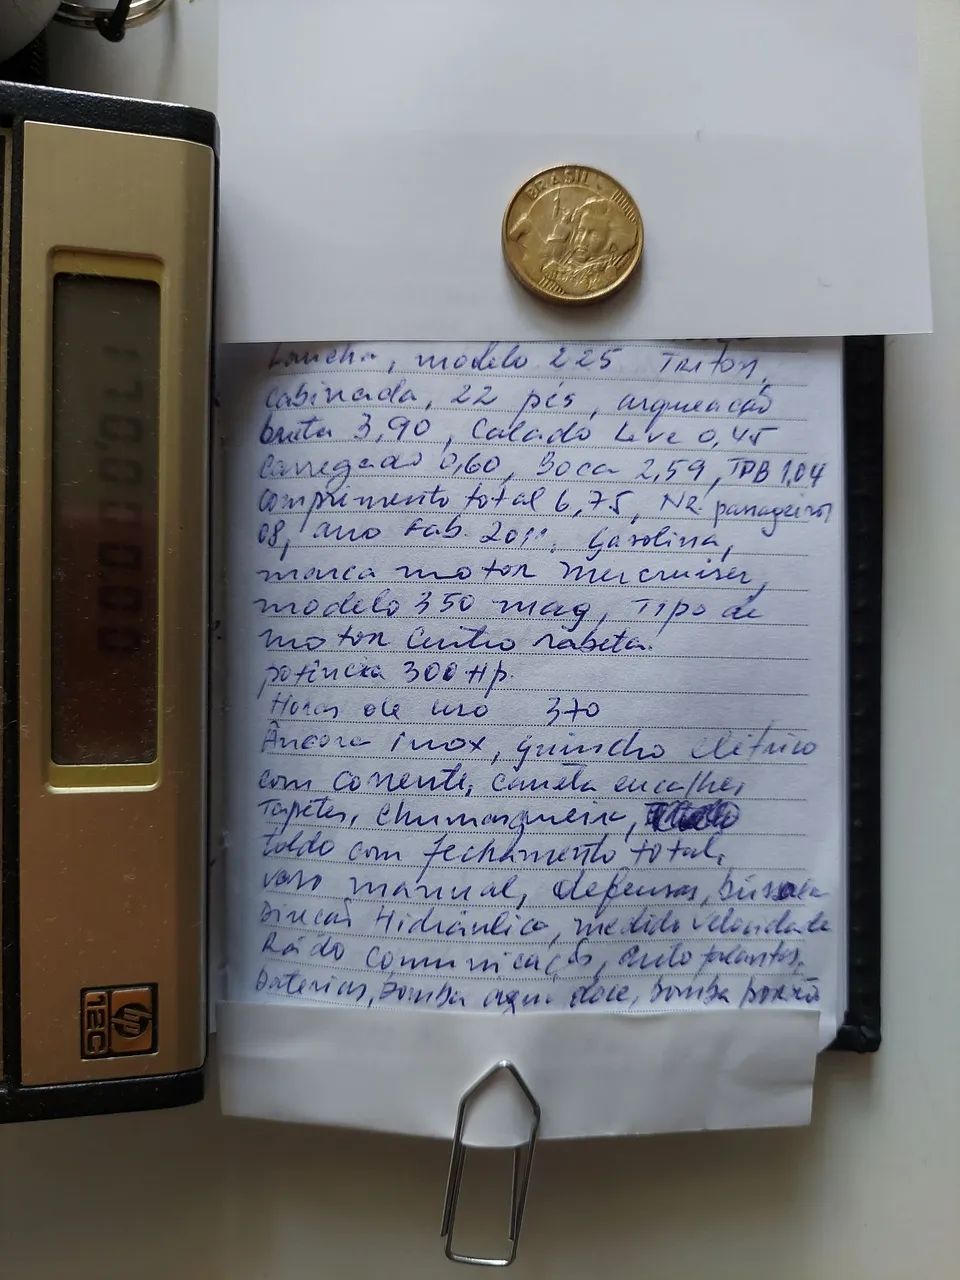 BRASIL
170,000.00
hp
12C
Lancha, modelo 225 Triton,
cabinada, 22 pés, arqueação
bruta 3,90, Calado Leve 0,45
Carregado 0,60, Boca 2,59, TPB 1,04
comprimento total 6,75, NR. passageiros
08, ano fab. 2011, Gasolina,
marca motor mercruiser,
modelo 350 mag, Tipo de
motor Centro rabeta.
potência 300 Hp.
Horas de uso 370
Âncora inox, guincho elétrico
com corrente, caneta encalhe,
Tapetes, churrasqueira,
toldo com fechamento total,
vaso manual, defensas, bússola
Direção Hidráulica, medido velocidade
Rádio comunicação, auto falantes.
baterias, bomba agua doce, bomba porão